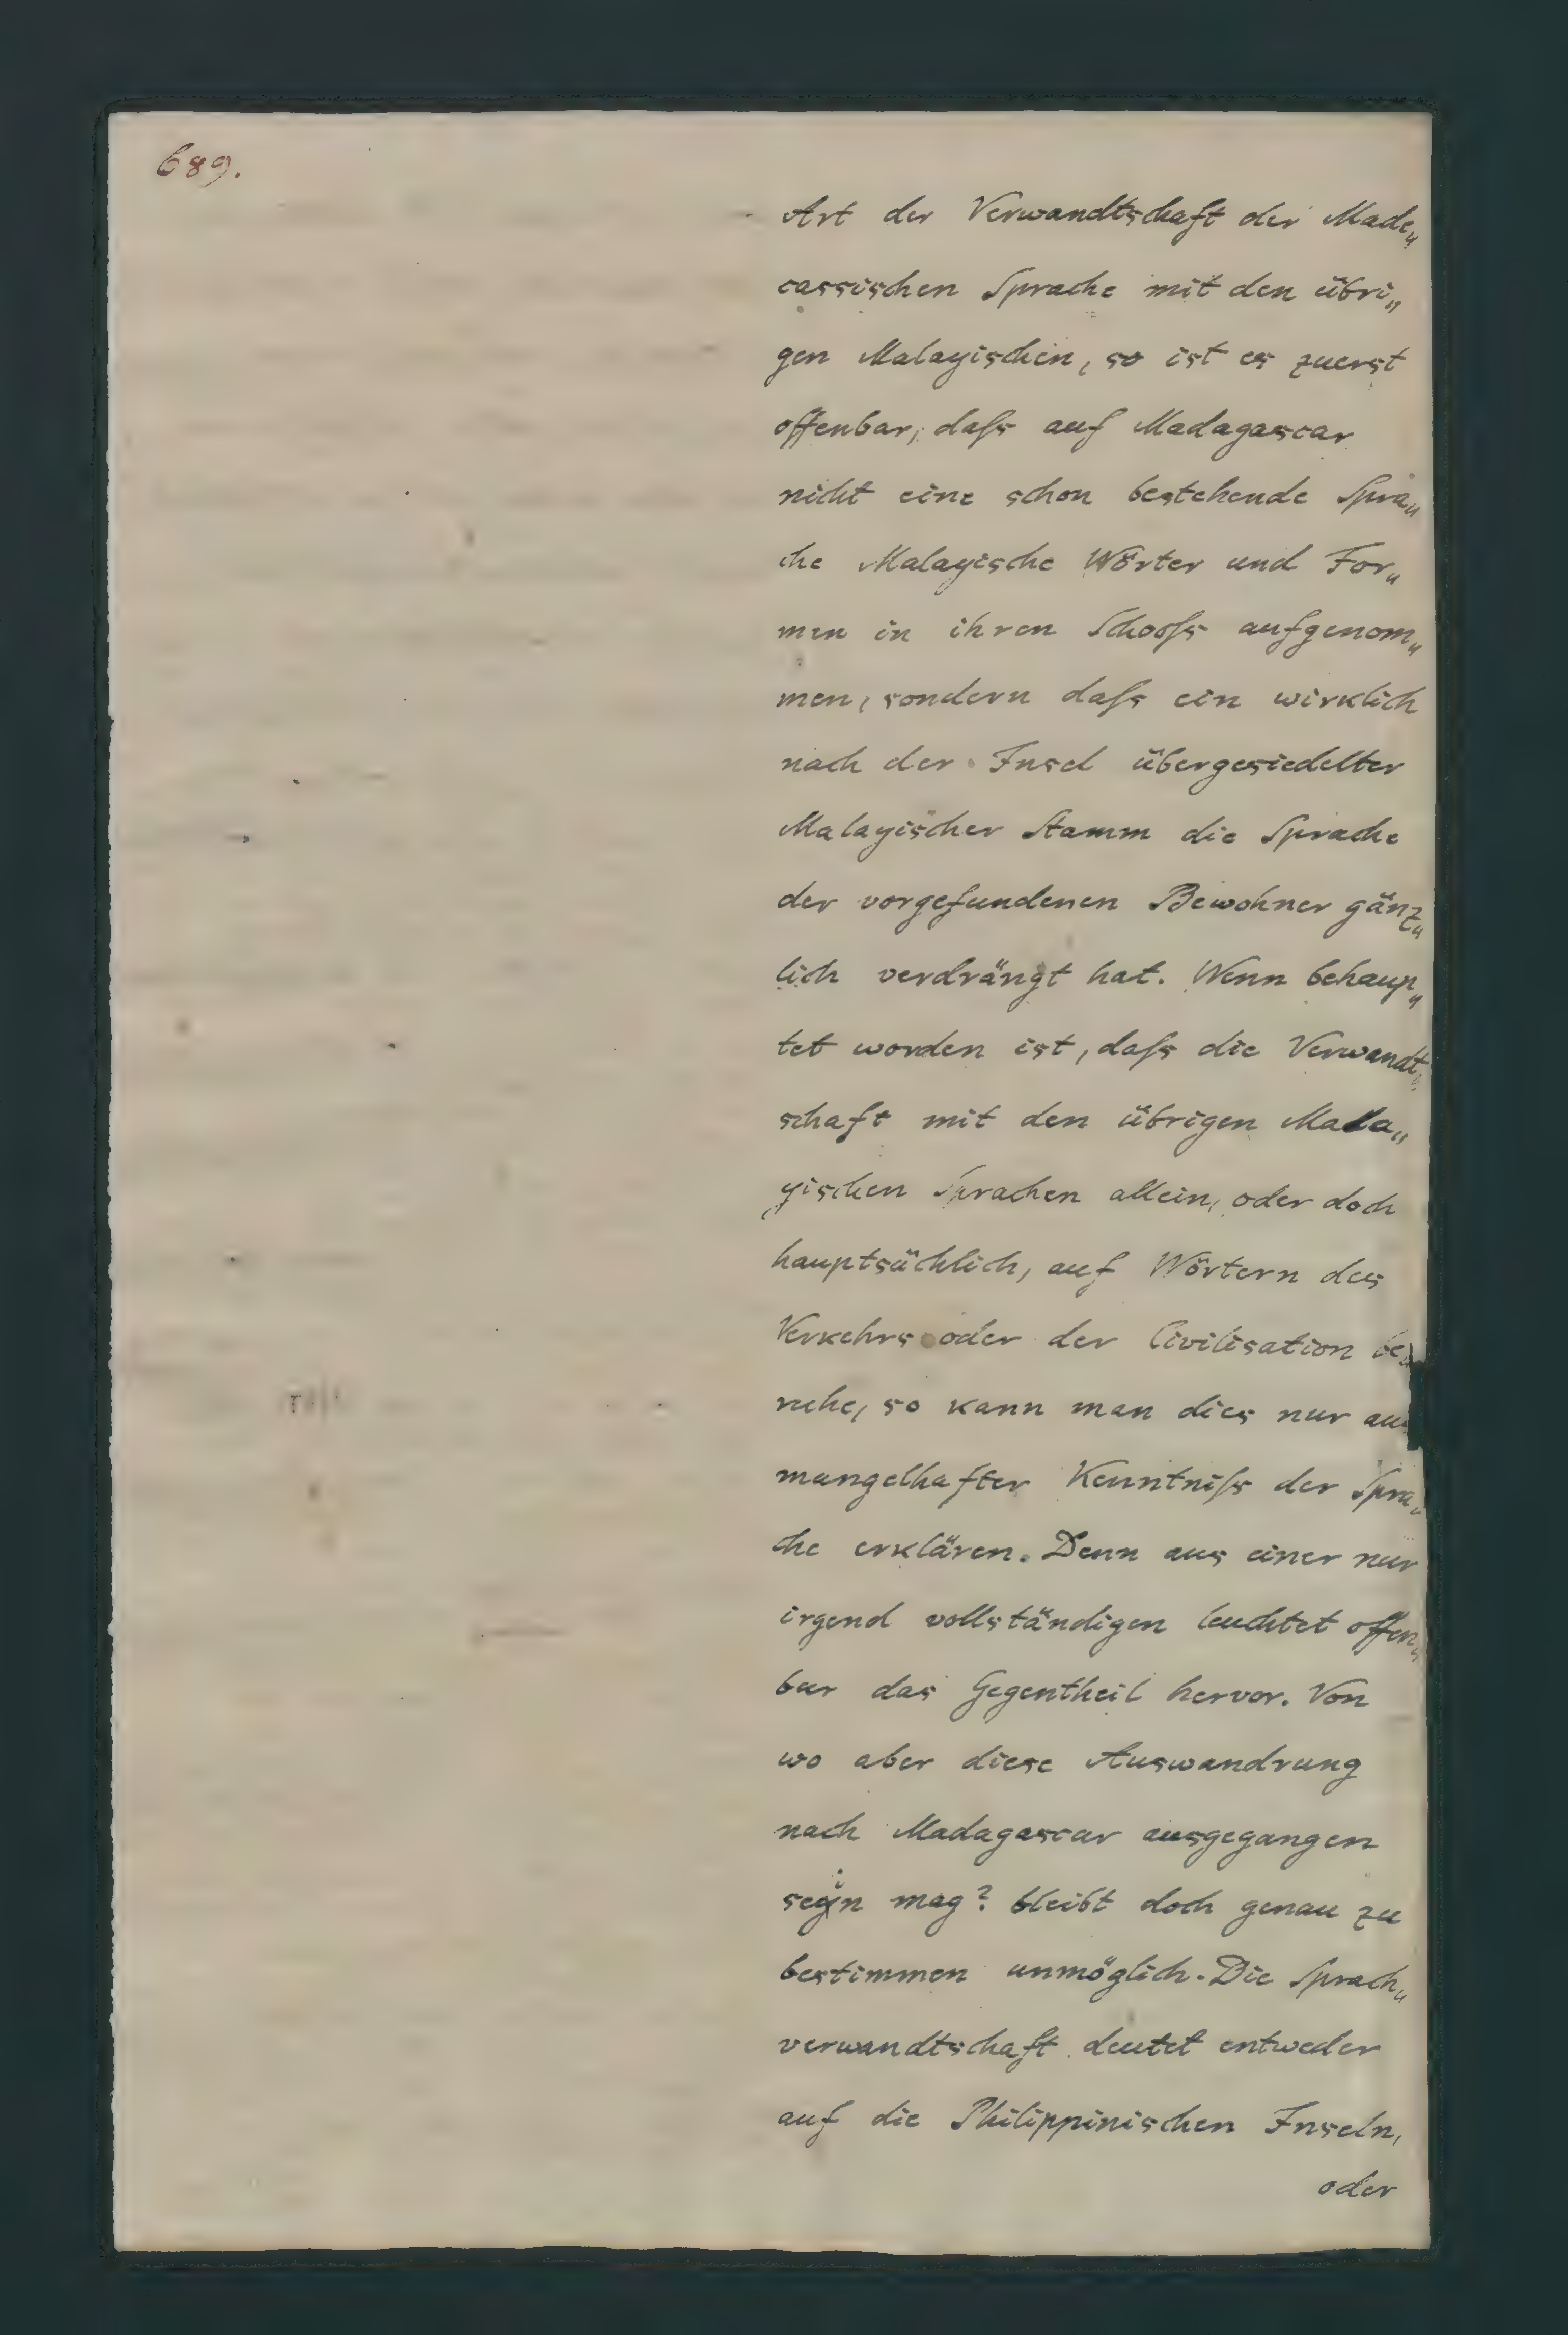 689.
Art der Verwandtschaft der Made„
cassischen Sprache mit den übri„
gen Malayischen, so ist es zuerst
offenbar, daſs auf Madagascar
nicht eine schon bestehende Spra„
che Malayische Wörter und For„
men in ihren Schooſs aufgenom„
men, sondern daſs ein wirklich
nach der Insel übergesiedelter
Malayischer Stamm die Sprache
der vorgefundenen Bewohner gänz„
lich verdrängt hat. Wenn behaup„
tet worden ist, daſs die Verwandt„
schaft mit den übrigen Mala„
yischen Sprachen allein, oder doch
hauptsächlich, auf Wörtern des
Verkehrs oder der Civilisation be„
ruhe, so kann man dies nur aus
mangelhafter Kenntniſs der Spra„
che erklären. Denn aus einer nur
irgend vollständigen leuchtet offen„
bar das Gegentheil hervor. Von
wo aber diese Auswandrung
nach Madagascar ausgegangen
seyn mag? bleibt doch genau zu
bestimmen unmöglich. Die Sprach„
verwandtschaft deutet entweder
auf die Philippinischen Inseln,
oder